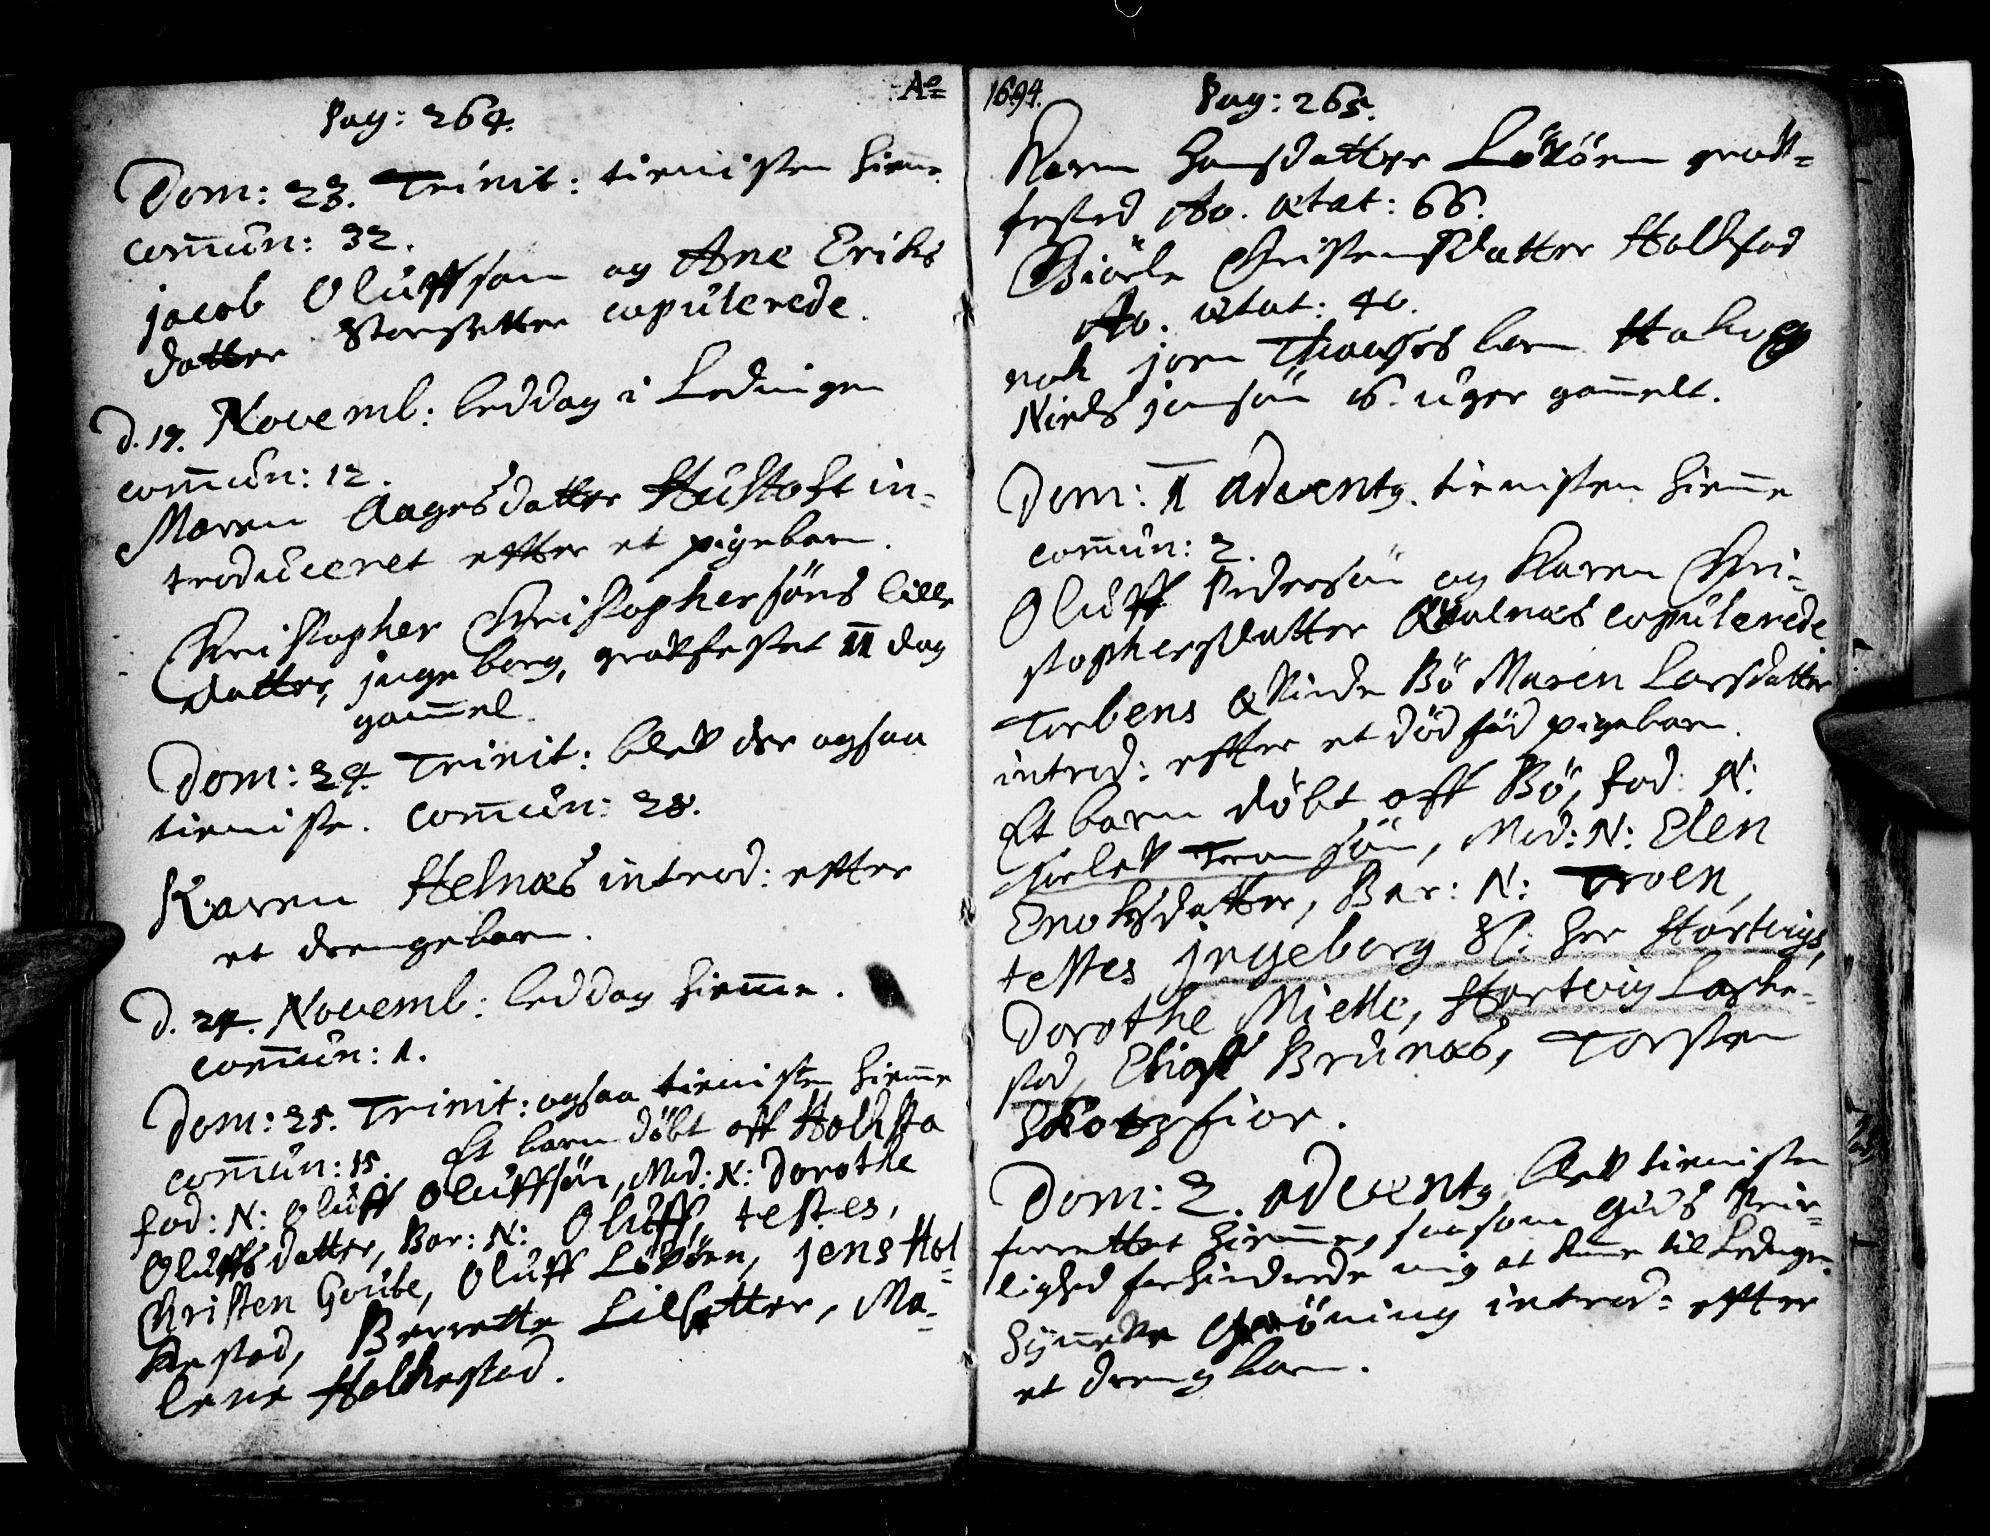 Pag: 264. Ao
Dom: 23. Trinit: tienisten hieme
comun: 32.
jacob Oluffson og Ane Eriks
datter Storsetter copulerede.
d. 17. Novemb: beddag i Ledingen
comun: 12.
Maren Aagesdatter Hustoft in-
troduceret effter et pigebarn.
Christopher Christophersöns lille
datter, jngeborg, grafsestet 11 dag
gammel.
Dom: 24. Trinit: blef der ogsaa
tieniste. comun: 28.
Karen Helnæs introd: effter
et drengebarn.
d. 24. Novemb: beddag hieme.
comun: 1.
Dom: 25. Trinit: ogsaa tienisten hieme
comun: 15. Et barn döbt aff Holksta
fad: N: Oluff Oluffsön, Mod: N: Dorothe
Oluffsdatter, Bar: N: Oluff, testes,
Christen Goube, Oluff Lököen, jens Hol-
kestad, Berrette Lilsetter, Ma-
lene Holkestad.
1694. Pag: 265.
Karen Hansdatter Lököen graff-
fested Ao. ætat: 66.
Christensdatter Holksad
Ao. ætat: 40.
nok jorn barn
Niels jonsön 16. uger gammelt.
Dom: 1 Advent9. tienisten hieme
comun: 2.
Oluff Pedersön og Karen Chri-
stophersdatter copulerede
Torbens Qvinde Bö Maren Larsdatter
introd: effter et död föd pigebarn.
Et barn döbt aff Bö, fad: N:
Troensön, Mod: N: Elen
Enoksdatter, Bar: N: Troen,
testes jngeborg Sl: her Hartvigs,
Dorothe Mielle, Hartvig Laske-
stad, Brunæs, Torsten
Skotzfior.
Dom: 2. advent9 blef tienisten
forrettet hieme, saasom Guds Veir-
lighed forhindrede mig at kome til Ledingen.
Gröning introd: effter
et drengbarn.